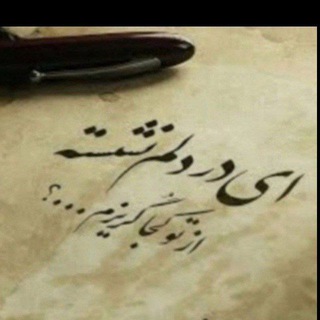 ای در دلم نشسته
از تو کجا گریزم...؟